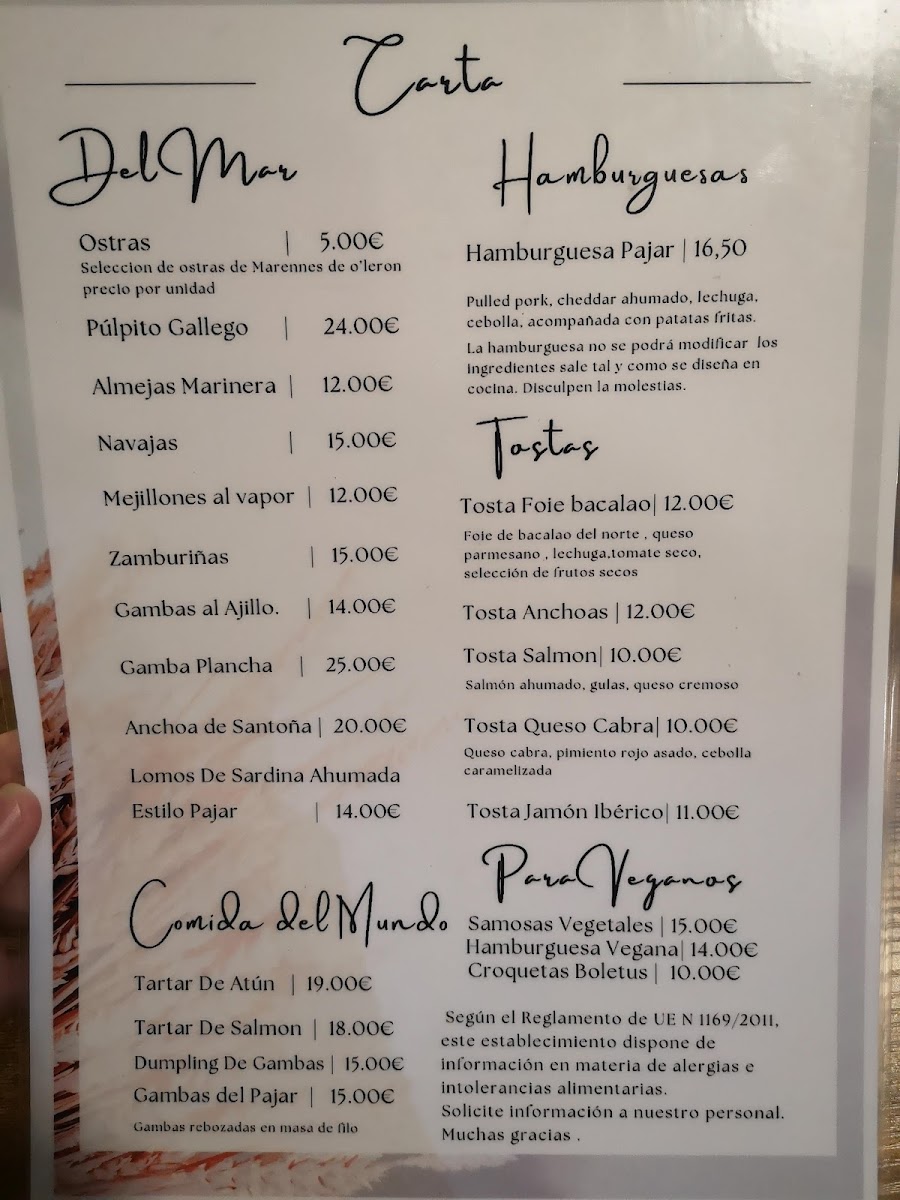 Carta
Del Mar
Ostras | 5.00€
Seleccion de ostras de Marennes de o'leron
precio por unidad
Púlpito Gallego | 24.00€
Almejas Marinera | 12.00€
Navajas | 15.00€
Mejillones al vapor | 12.00€
Zamburiñas | 15.00€
Gambas al Ajillo. | 14.00€
Gamba Plancha | 25.00€
Anchoa de Santoña | 20.00€
Lomos De Sardina Ahumada
Estilo Pajar | 14.00€
Comida del Mundo
Tartar De Atún | 19.00€
Tartar De Salmon | 18.00€
Dumpling De Gambas | 15.00€
Gambas del Pajar | 15.00€
Gambas rebozadas en masa de filo
Hamburguesas
Hamburguesa Pajar | 16,50
Pulled pork, cheddar ahumado, lechuga,
cebolla, acompañada con patatas fritas.
La hamburguesa no se podrá modificar los
ingredientes sale tal y como se diseña en
cocina. Disculpen la molestias.
Tostas
Tosta Foie bacalao| 12.00€
Foie de bacalao del norte , queso
parmesano , lechuga,tomate seco,
selección de frutos secos
Tosta Anchoas | 12.00€
Tosta Salmon| 10.00€
Salmón ahumado, gulas, queso cremoso
Tosta Queso Cabra| 10.00€
Queso cabra, pimiento rojo asado, cebolla
caramelizada
Tosta Jamón Ibérico| 11.00€
Para Veganos
Samosas Vegetales | 15.00€
Hamburguesa Vegana| 14.00€
Croquetas Boletus | 10.00€
Según el Reglamento de UE N 1169/2011,
este establecimiento dispone de
información en materia de alergias e
intolerancias alimentarias.
Solicite información a nuestro personal.
Muchas gracias .